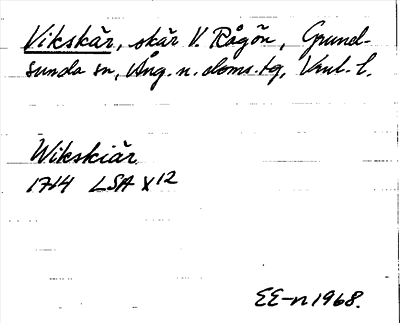 Vikskär, skär V. Rågön, Grund-
sunda sn, Ång. n. doms. tg, Vnl. l.
Wikskiär
1714 LSA X12
EE-n 1968.